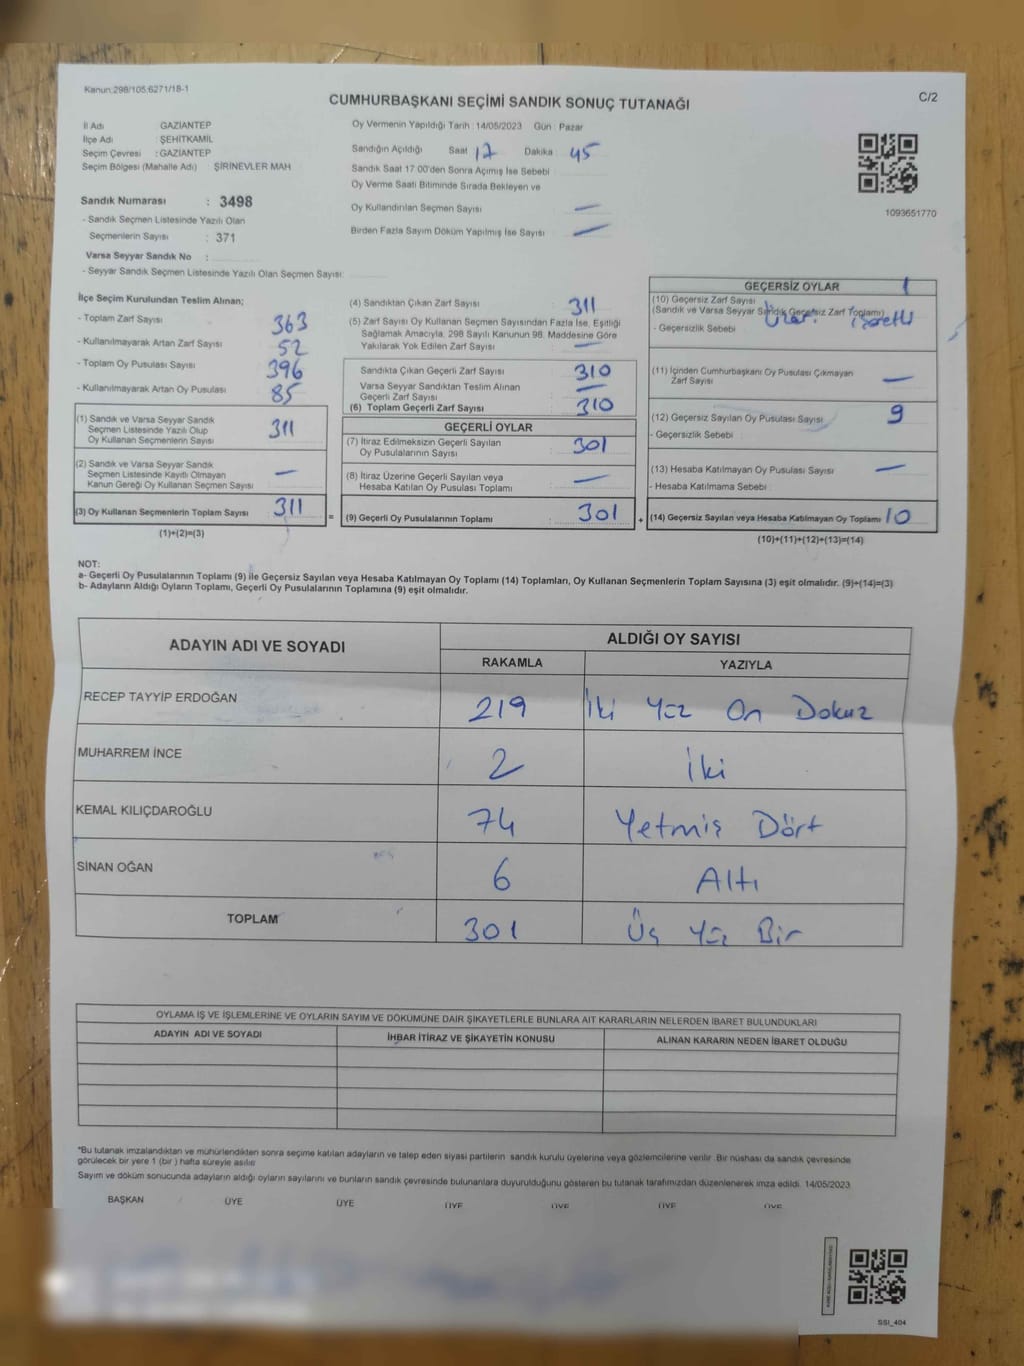 Kanun:298/105;6271/18-1
CUMHURBAŞKANI SEÇİMİ SANDIK SONUÇ TUTANAĞI
C/2
İl Adı GAZİANTEP
İlçe Adı : ŞEHİTKAMİL
Seçim Çevresi : GAZİANTEP
Seçim Bölgesi (Mahalle Adı) : ŞİRİNEVLER MAH
Sandık Numarası : 3498
- Sandık Seçmen Listesinde Yazılı Olan
Seçmenlerin Sayısı : 371
Varsa Seyyar Sandık No :
- Seyyar Sandık Seçmen Listesinde Yazılı Olan Seçmen Sayısı:
Oy Vermenin Yapıldığı Tarih : 14/05/2023 Gün : Pazar
Sandığın Açıldığı Saat 17 Dakika : 45
Sandık Saat 17.00'den Sonra Açımış İse Sebebi
Oy Verme Saati Bitiminde Sırada Bekleyen ve
Oy Kullandırılan Seçmen Sayısı —
Birden Fazla Sayım Döküm Yapılmış İse Sayısı : —
1093651770
İlçe Seçim Kurulundan Teslim Alınan;
- Toplam Zarf Sayısı 363
- Kullanılmayarak Artan Zarf Sayısı : 52
- Toplam Oy Pusulası Sayısı 396
- Kullanılmayarak Artan Oy Pusulası : 85
(1) Sandık ve Varsa Seyyar Sandık
Seçmen Listesinde Yazılı Olup
Oy Kullanan Seçmenlerin Sayısı 311
(2) Sandık ve Varsa Seyyar Sandık
Seçmen Listesinde Kayıtlı Olmayan
Kanun Gereği Oy Kullanan Seçmen Sayısı —
(3) Oy Kullanan Seçmenlerin Toplam Sayısı 311
(1)+(2)=(3)
(4) Sandıktan Çıkan Zarf Sayısı 311
(5) Zarf Sayısı Oy Kullanan Seçmen Sayısından Fazla İse, Eşitliği
Sağlamak Amacıyla, 298 Sayılı Kanunun 98. Maddesine Göre
Yakılarak Yok Edilen Zarf Sayısı —
Sandıkta Çıkan Geçerli Zarf Sayısı 310
Varsa Seyyar Sandıktan Teslim Alınan
Geçerli Zarf Sayısı —
(6) Toplam Geçerli Zarf Sayısı 310
GEÇERLİ OYLAR
(7) İtiraz Edilmeksizin Geçerli Sayılan
Oy Pusulalarının Sayısı : 301
(8) İtiraz Üzerine Geçerli Sayılan veya
Hesaba Katılan Oy Pusulası Toplamı : —
= (9) Geçerli Oy Pusulalarının Toplamı : 301
GEÇERSİZ OYLAR
(10) Geçersiz Zarf Sayısı 1
(Sandık ve Varsa Seyyar Sandık Geçersiz Zarf Toplamı)
- Geçersizlik Sebebi
(11) İçinden Cumhurbaşkanı Oy Pusulası Çıkmayan
Zarf Sayısı —
(12) Geçersiz Sayılan Oy Pusulası Sayısı 9
- Geçersizlik Sebebi :
(13) Hesaba Katılmayan Oy Pusulası Sayısı —
- Hesaba Katılmama Sebebi
+ (14) Geçersiz Sayılan veya Hesaba Katılmayan Oy Toplamı 10
(10)+(11)+(12)+(13)=(14)
NOT:
a- Geçerli Oy Pusulalarının Toplamı (9) ile Geçersiz Sayılan veya Hesaba Katılmayan Oy Toplamı (14) Toplamları, Oy Kullanan Seçmenlerin Toplam Sayısına (3) eşit olmalıdır. (9)+(14)=(3)
b- Adayların Aldığı Oyların Toplamı, Geçerli Oy Pusulalarının Toplamına (9) eşit olmalıdır.
ADAYIN ADI VE SOYADI ALDIĞI OY SAYISI
RAKAMLA YAZIYLA
RECEP TAYYİP ERDOĞAN 219 İki Yüz On Dokuz
MUHARREM İNCE 2 İki
KEMAL KILIÇDAROĞLU 74 Yetmiş Dört
SİNAN OĞAN 6 Altı
TOPLAM 301 Üç Yüz Bir
OYLAMA İŞ VE İŞLEMLERİNE VE OYLARIN SAYIM VE DÖKÜMÜNE DAİR ŞİKAYETLERLE BUNLARA AİT KARARLARIN NELERDEN İBARET BULUNDUKLARI
ADAYIN ADI VE SOYADI İHBAR İTİRAZ VE ŞİKAYETİN KONUSU ALINAN KARARIN NEDEN İBARET OLDUĞU
*Bu tutanak imzalandıktan ve mühürlendikten sonra seçime katılan adayların ve talep eden siyasi partilerin sandık kurulu üyelerine veya gözlemcilerine verilir. Bir nüshası da sandık çevresinde
görülecek bir yere 1 (bir ) hafta süreyle asılır
Sayım ve döküm sonucunda adayların aldığı oyların sayılarını ve bunların sandık çevresinde bulunanlara duyurulduğunu gösteren bu tutanak tarafımızdan düzenlenerek imza edildi. 14/05/2023
BAŞKAN ÜYE ÜYE ÜYE ÜYE ÜYE ÜYE
SSI_404